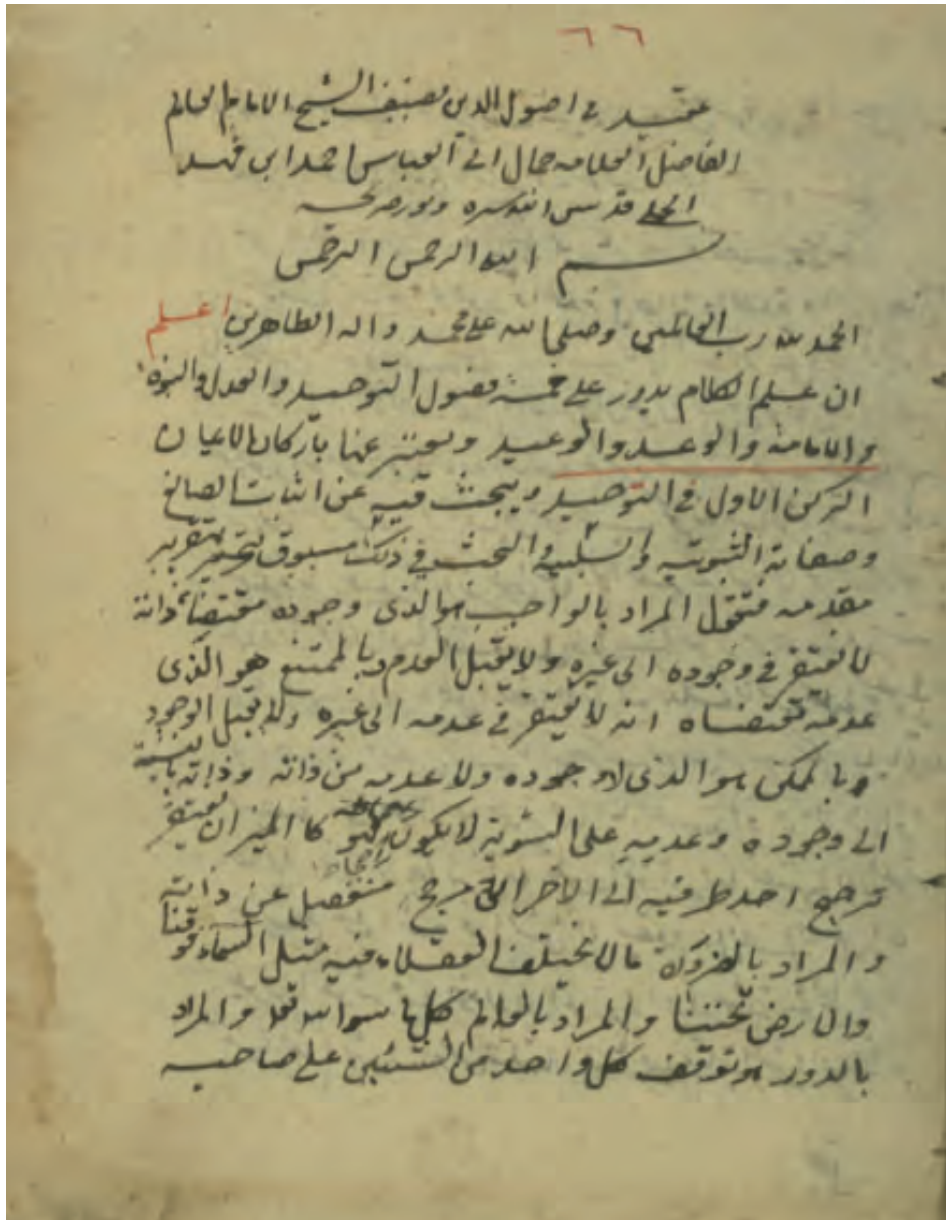 ٦٦
عقيد في اصول الدين تصنيف الشيخ الامام العالم
الفاضل العلامه جمال الى العباس احمد ابن فهد
الحلي قدس الله سره ونور ضريحه
بسم الله الرحمن الرحيم
الحمد لله رب العالمين وصلى الله على محمد واله الطاهرين اعلم
ان علم الكلام يدور على خمسة فصول التوحيد والعدل والنبوة
والامامة والوعد والوعيد ويعتبر عنها باركان الاعيان
الركن الاول في التوحيد ويبحث فيه عن اثبات الصانع
وصفاته الثبوتيه والسلبيه والبحث في ذلك مسبوق بتقرير
مقدمه فنقول المراد بالواجب هو الذى وجوده مقتضا ذاته
لا يفتقر في وجوده الى غيره ولا يقبل العدم وبالممتنع هو الذى
عدمه مقتضاه انه لا يفتقر في عدمه الى غيره ولا يقبل الوجود
وبالممكن هو الذى لا وجوده ولا عدمه من ذاته وذاته بالنسبة
الى وجوده وعدمه على السوية لا يكون كالميزان يفتقر
ترجيح احد طرفيه الى الاخر الى مرجح منفصل عن ذاته
والمراد بالضرورة ما لا يختلف العقلاء فيه مثل السماء فوقنا
والارض تحتنا والمراد بالعالم كل ما سوا الله تعا والمراد
بالدور هو توقف كل واحد من الشيئين على صاحبه